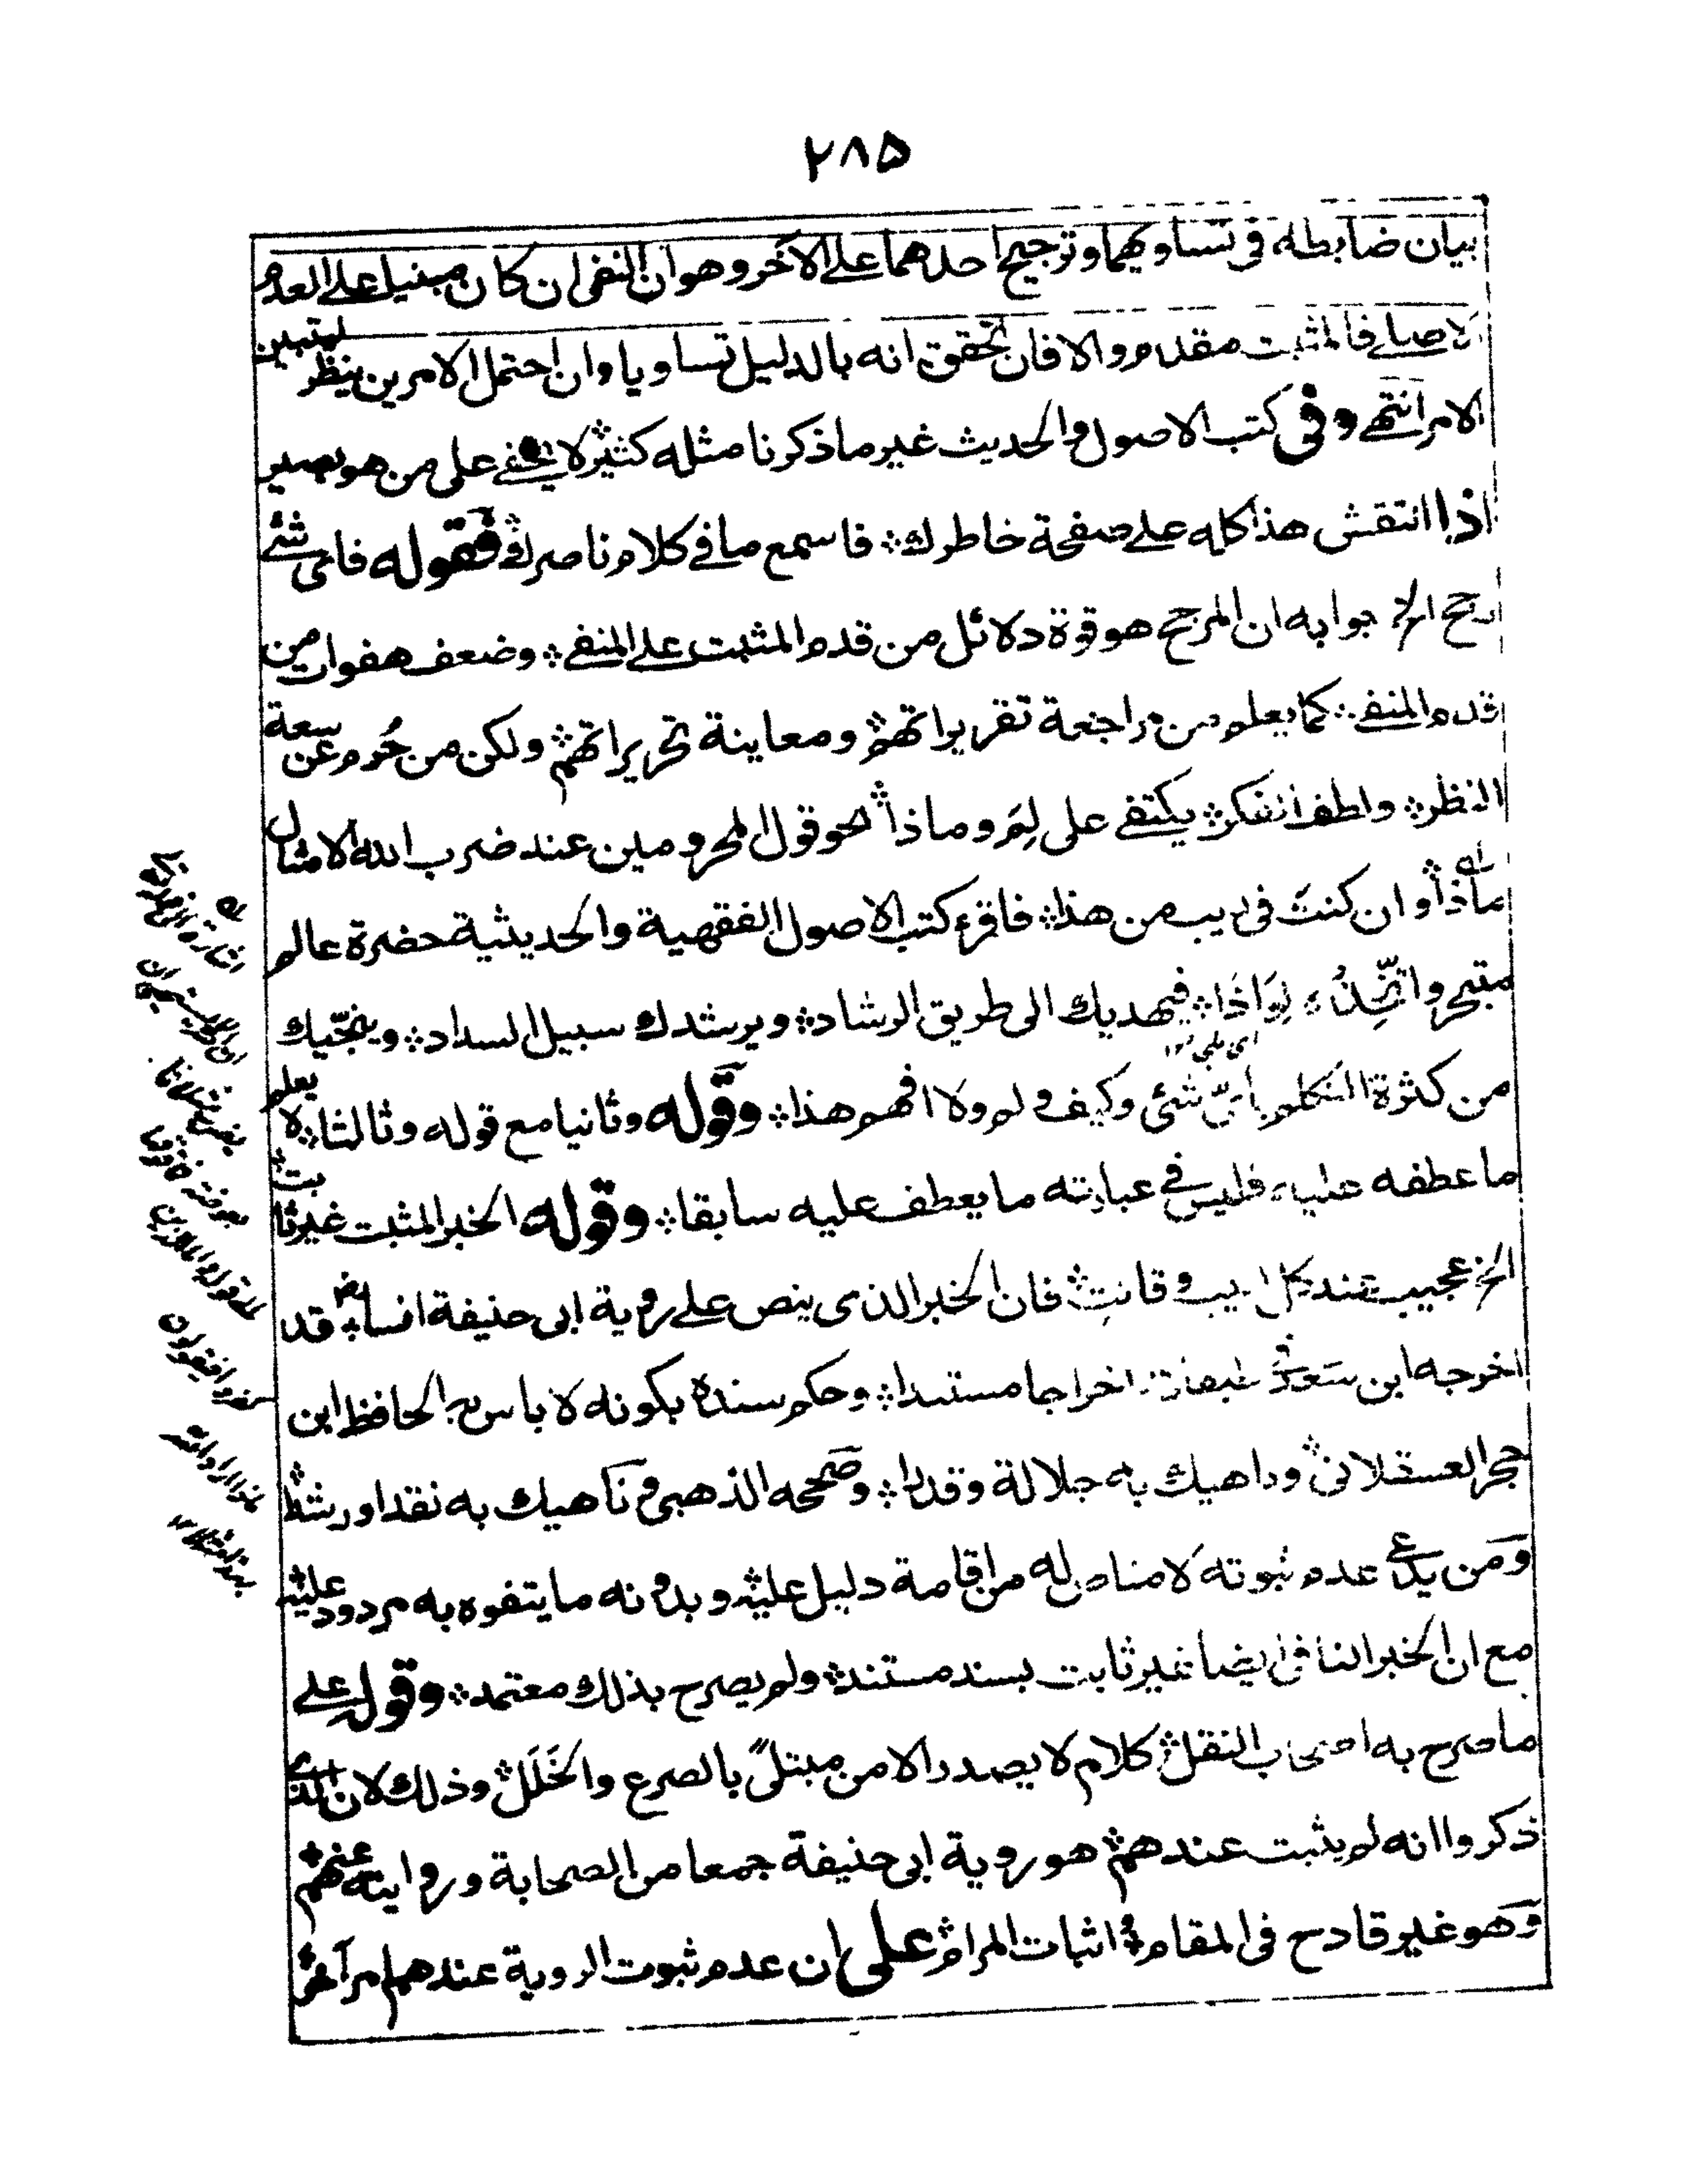 ٢٨٥
بيان ضابطه فى تساويهما وترجيح احدهما على الآخر وهو ان النفى ان كان مبنيا على العدم
الاصلى فالمثبت مقدم والا فان تحقق انه بالدليل تساويا وان احتمل الامرين ينظر ليتبين
الامر انتهى وفى كتب الاصول والحديث غير ما ذكرنا مثله كثير لا يخفى على من هو بصير
اذا انتقش هذا كله على صفحة خاطرك فاسمع ما فى كلام ناصرك فقوله فاى شئ
رجح الخ جوابه ان المرجح هو قوة دلائل من قدم المثبت على المنفى وضعف هفوات من
قدم المنفى كما يعلم من مراجعة تقريراتهم ومعاينة تحريراتهم ولكن من حُرم عن سعة
النظر ولطف الفكر يكتفى على لِمَ وماذا نحو قول المحرومين عند ضرب الله الامثال
ماذا وان كنت فى ريب من هذا فاقرء كتب الاصول الفقهية والحديثية حضرة عالم
متبحر واتّخِذْه لِوَاذًا فيهديك الى طريق الرشاد ويرشدك سبيل السداد وينجّيك
من كثرة التكلم باىّ شئ وكيف ولم ولا افهم هذا وقوله وثانيا مع قوله وثالثا لا يعلم
ما عطفه عليه فليس فى عبارته ما يعطف عليه سابقا وقوله الخبر المثبت غير ثابت
الخ عجيب عند كل لبيب وقانت فان الخبر الذى ينص على روية ابى حنيفة انسا قد
اخرجه ابن سعد فى طبقاته اخراجا مستندا وحكم سنده بكونه لا باس به الحافظ ابن
حجر العسقلانى وناهيك به جلالة وقدرا وصححه الذهبى وناهيك به نقدا ورشدا
ومن يدعى عدم ثبوته لا مناص له من اقامة دليل عليه وبدونه ما يتفوه به مردود عليه
مع ان الخبر النافى ايضا غير ثابت بسند مستند ولم يصرح بذلك معتمد وقوله على
ما صرح به اصحاب النقل كلام لا يصدر الا من مبتلًى بالصرع والخَلَل وذلك لان الذى
ذكروا انه لم يثبت عندهم هو روية ابى حنيفة جمعا من الصحابة وروايته عنهم
وهو غير قادح فى المقام واثبات المرام على ان عدم ثبوت الروية عندهم امر آخر